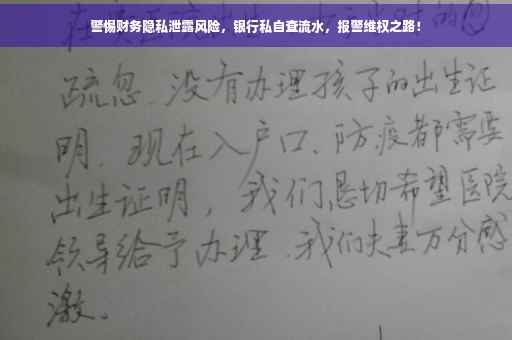 警惕财务隐私泄露风险，银行私自查流水，报警维权之路！
疏忽、没有办理孩子的出生证
明、现在入户口、防疫都需要
出生证明，我们恳切希望医院
领导给予办理、我们夫妻万分感
激。